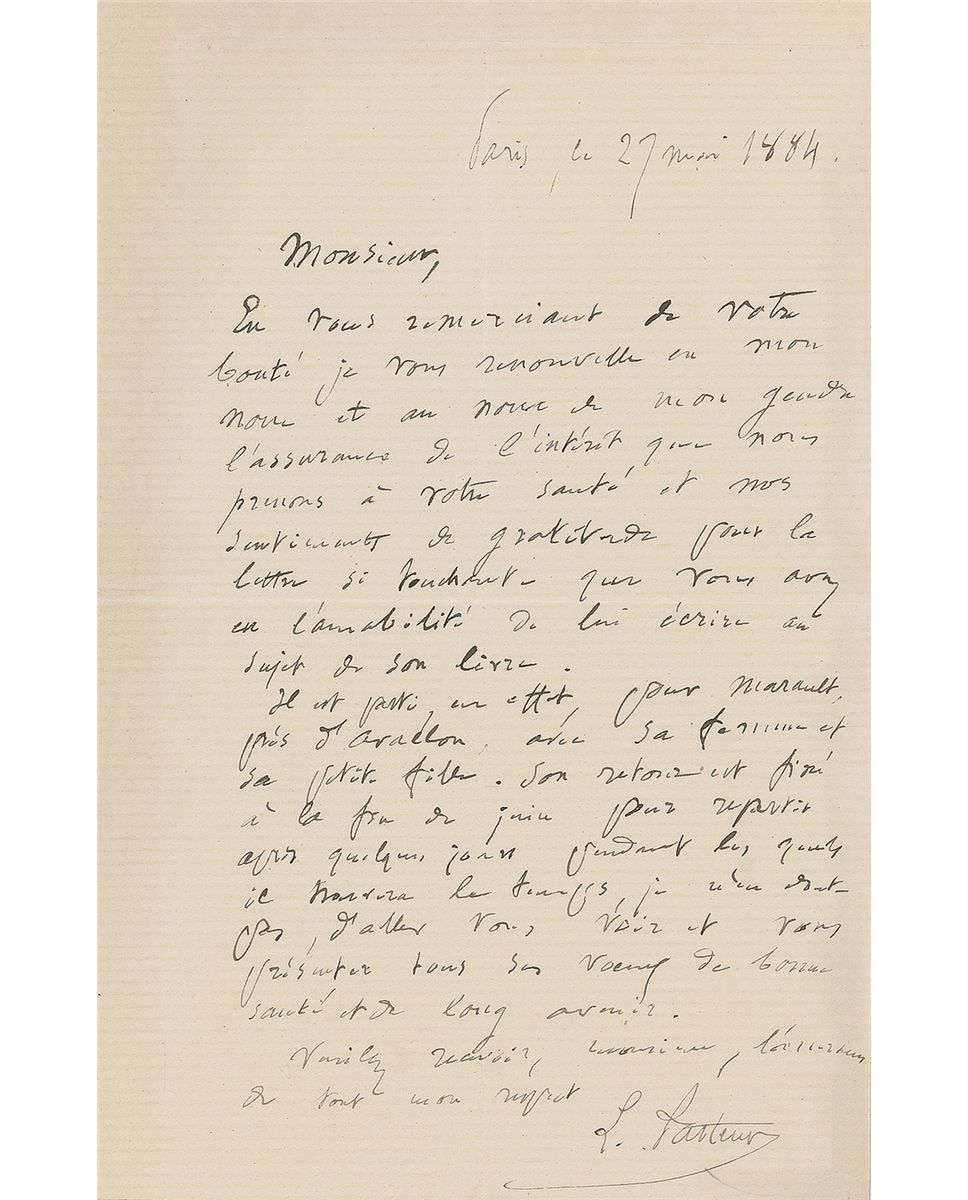 Paris, le 27 mai 1884.
Monsieur,
En vous remerciant de votre
bonté je vous renouvelle en mon
nom et au nom de mon gendre
l'assurance de l'intérêt que nous
prenons à votre santé et nos
sentiments de gratitude pour la
lettre si touchante que vous avez
eu l'amabilité de lui écrire au
sujet de son livre.
Il est parti, en effet, pour Marault,
près d'Avallon, avec sa femme et
sa petite fille. Son retour est fixé
à la fin de juin pour repartir
après quelques jours pendant les quels
il trouvera le temps, je n'en doute
pas, d'aller vous voir et vous
présenter tous ses vœux de bonne
santé et de long avenir.
Veuillez recevoir, monsieur, l'assurance
de tout mon respect
L. Pasteur